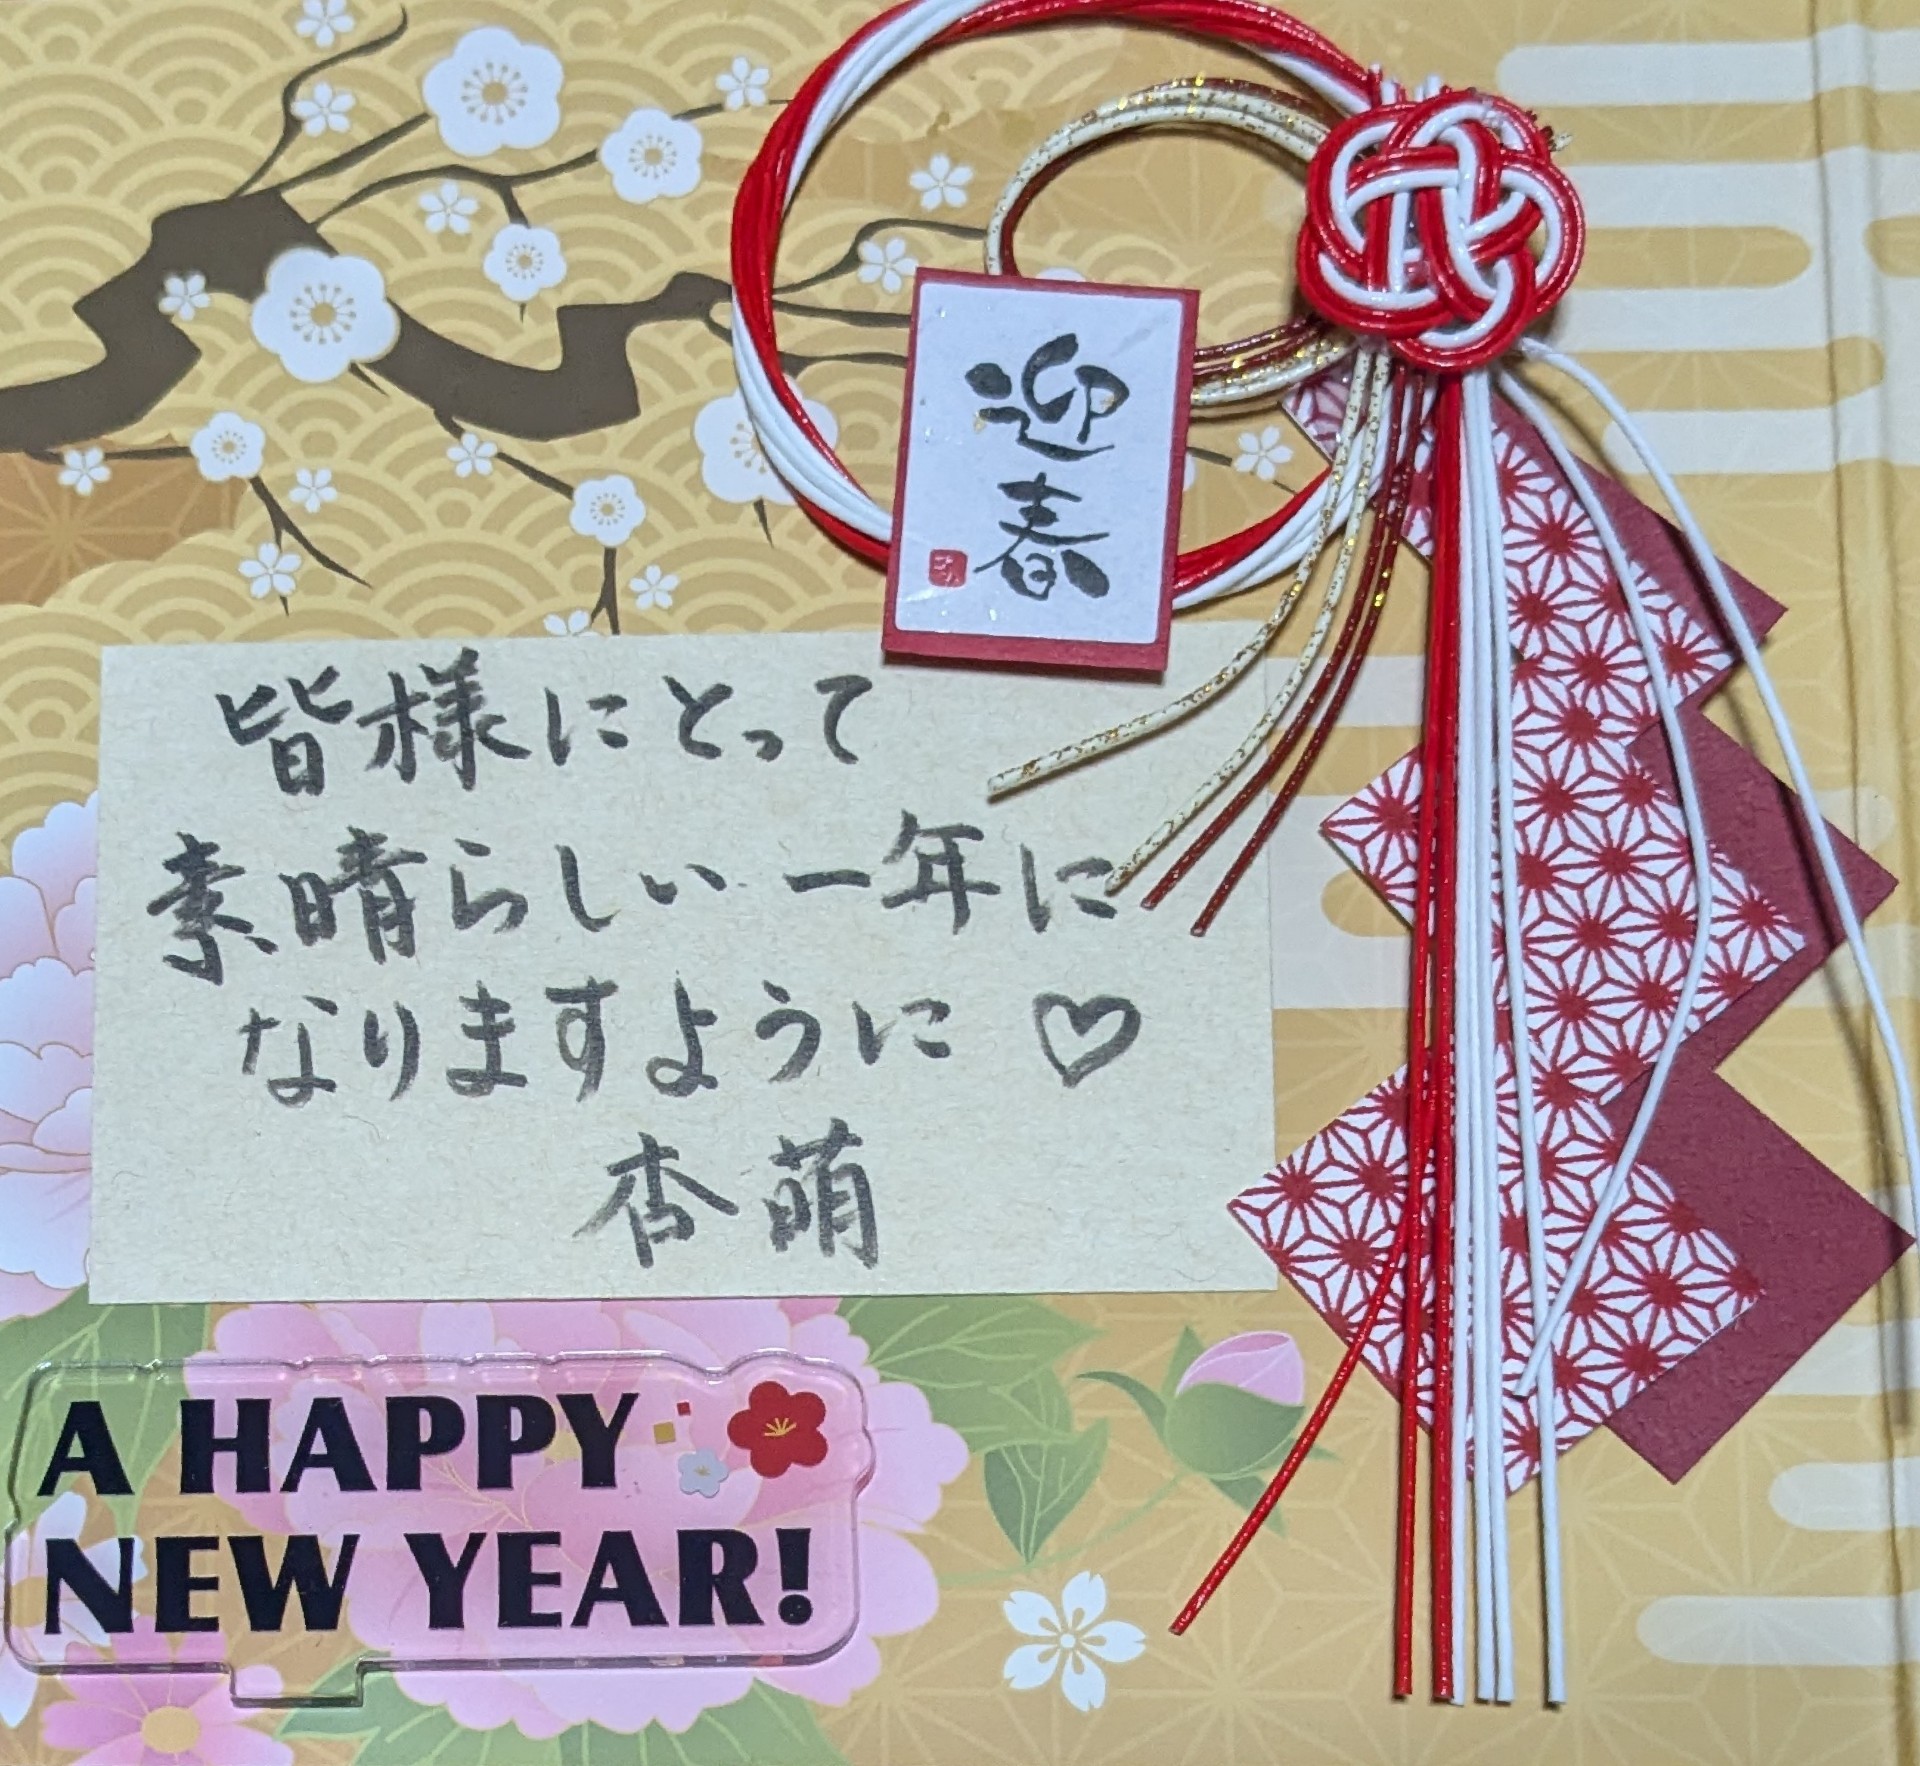 迎春
皆様にとって
素晴らしい一年に
なりますように♡
杏萌
A HAPPY
NEW YEAR!